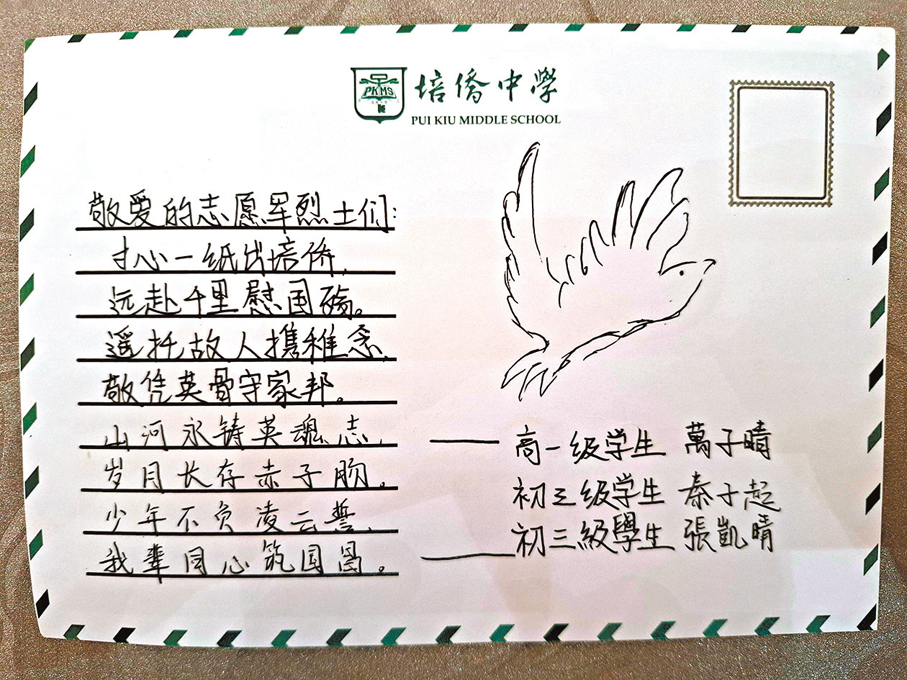 PKMS
培僑中學
PUI KIU MIDDLE SCHOOL
敬爱的志愿军烈士们:
寸心一纸出培侨,
远赴千里慰国殇。
遥托故人携稚念,
敬凭英骨守家邦。
山河永铸英魂志,
岁月长存赤子胸。
少年不负凌云誓,
我辈同心筑国。
——高一级学生 萬子晴
初三级学生 秦子起
——初三級學生 張凱晴